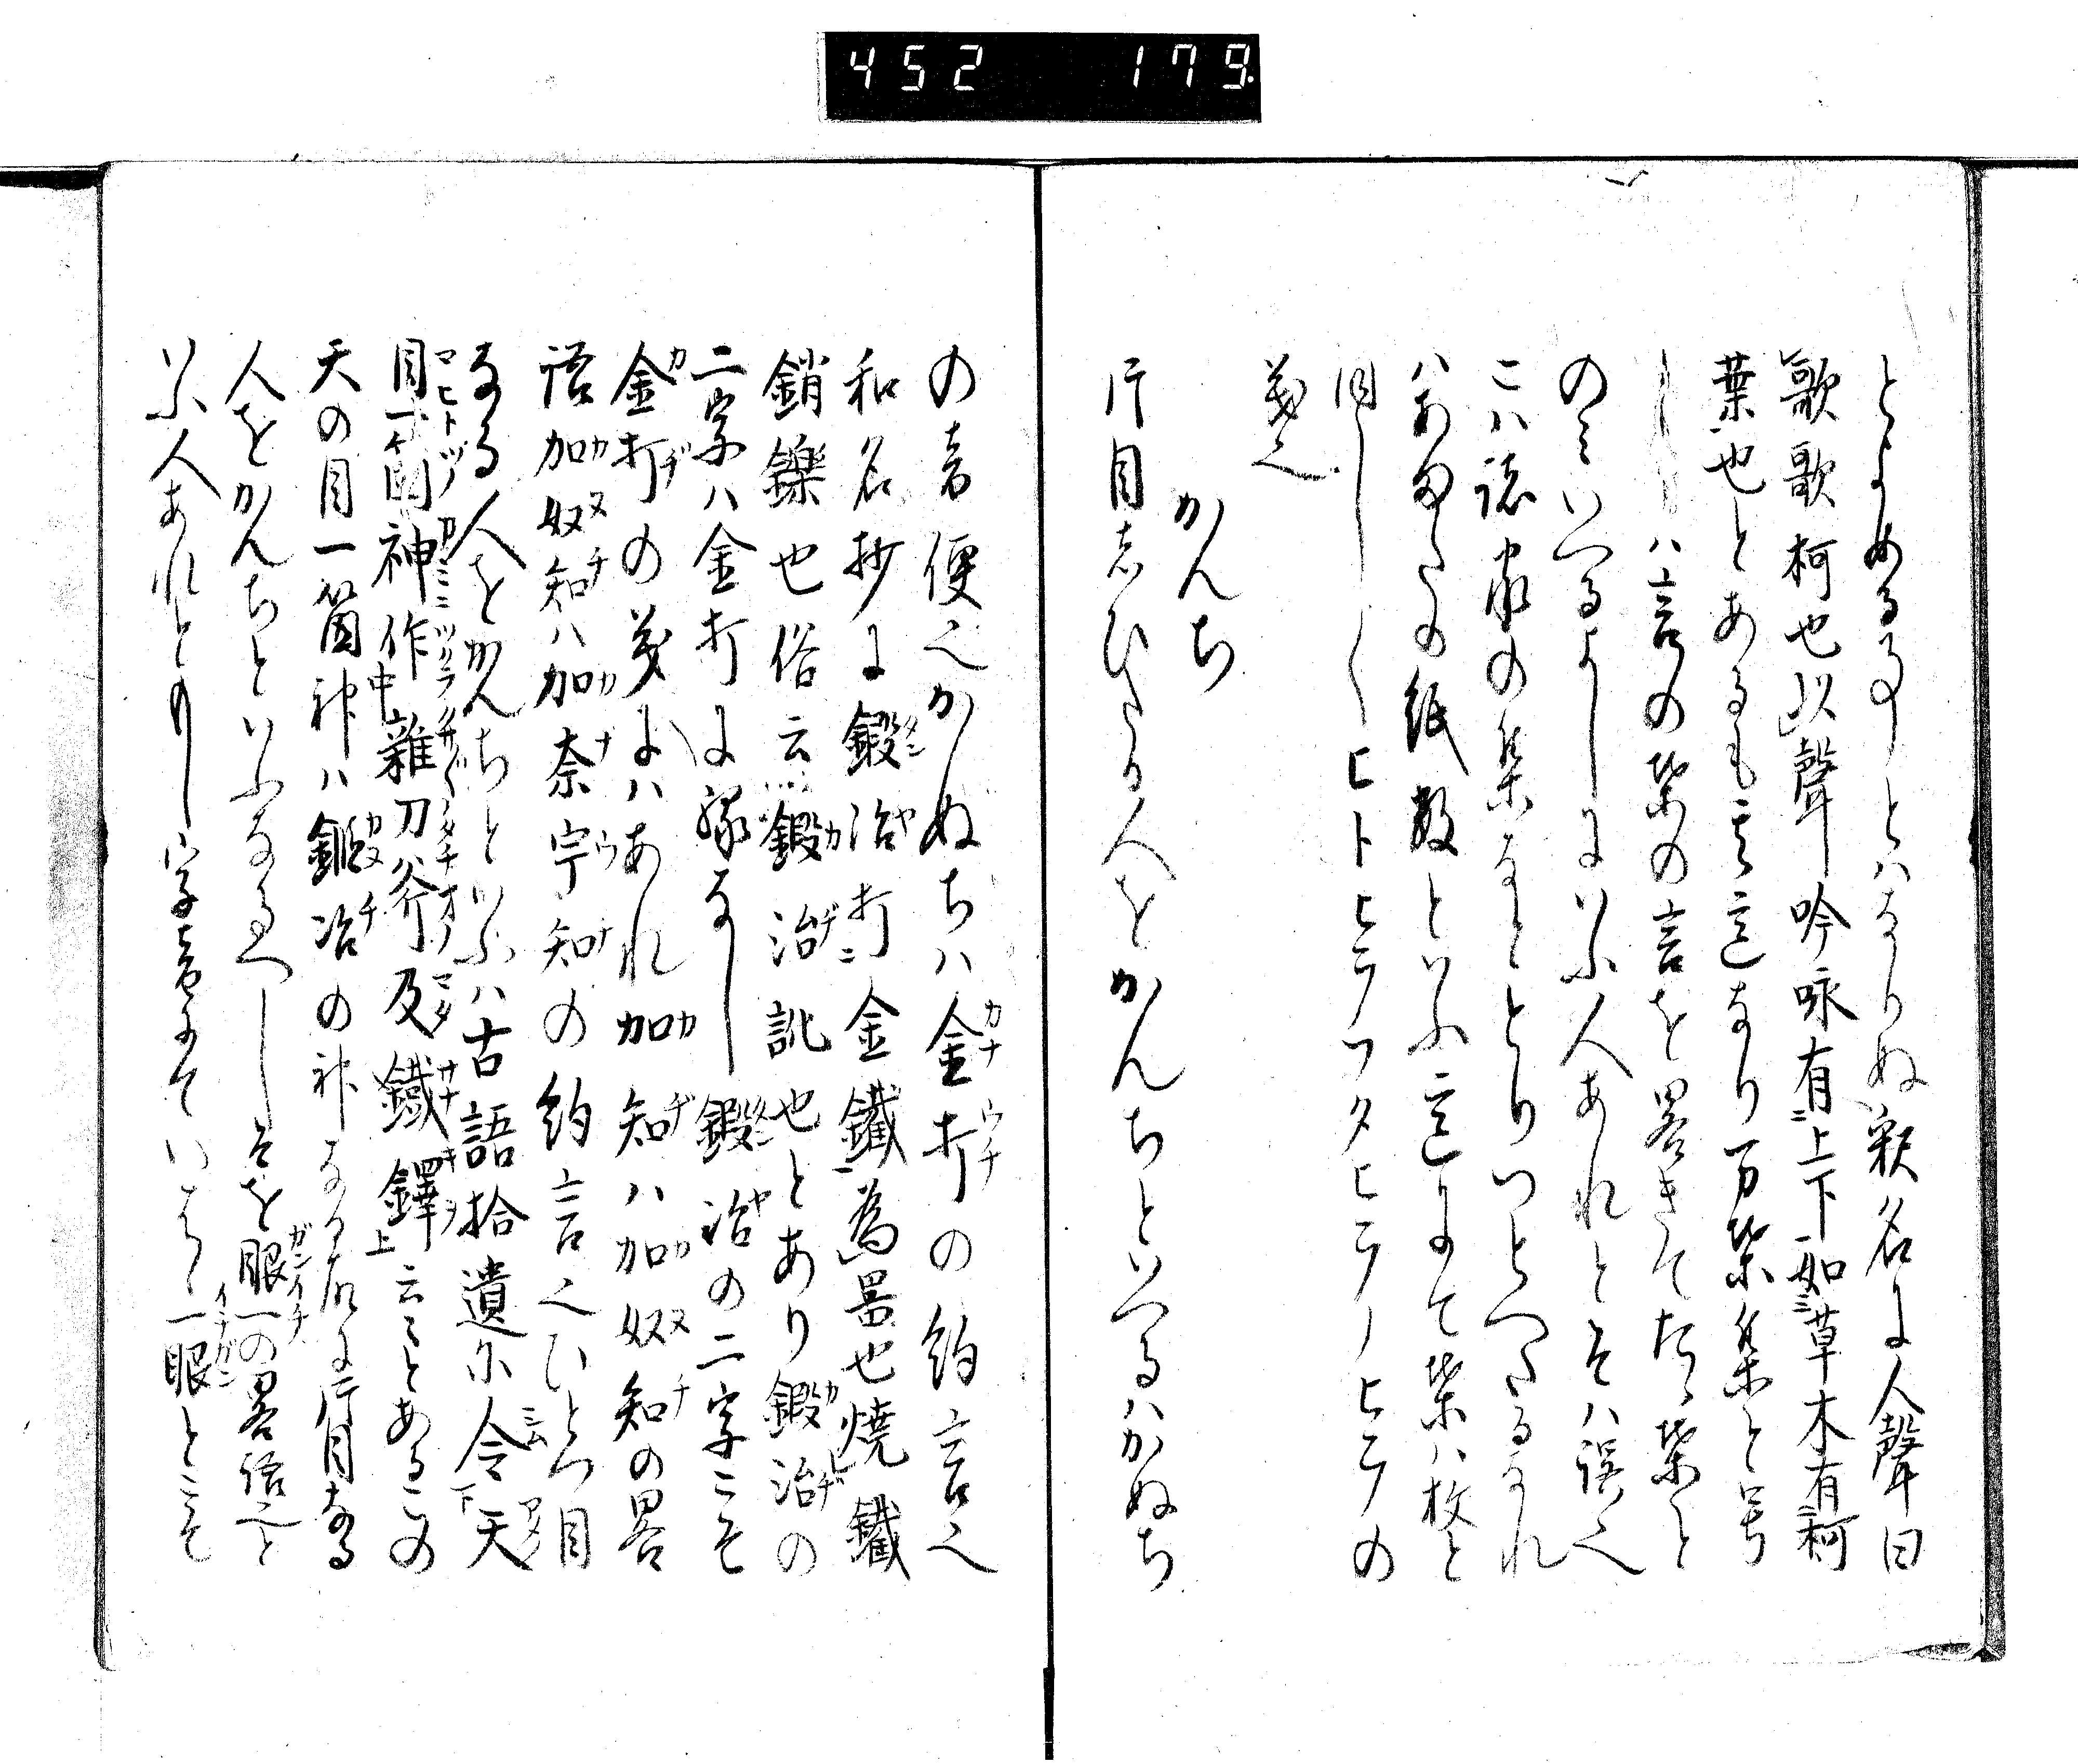 452 179
とよめる事とハなりぬ釈名に人聲曰
歌歌柯也以聲吟咏有上下如草木有柯
葉也とあるも其意なり万葉集と号
ハ言の葉の言を畧きてたゝ葉と
のミいへるよしにいふ人あれとそハ誤也
こハ諸家の集なととりつとへたるなれ
ハあまたの紙数といふ意にて葉ハ枚と
同しくヒトヒラフタヒラノヒラの
義也
かんち
片目しひたる人をかんちといへるハかぬち
の音便也かぬちハ金打の約言也
和名抄に鍛冶打金鐵為器也焼鐵
銷鑠也俗云鍛冶訛也とあり鍛冶の
二字ハ金打に縁なし鍛冶の二字こそ
金打の義にハあれ加知ハ加奴知の畧
語加奴知ハ加奈宇知の約言也ひとつ目
なる人をかんちといふハ古語拾遺に令天
目一箇神作雑刀斧及鐵鐸云々とあるこの
天の目一箇神ハ鍛冶の神なる故に片目なる
人をかんちといふなるへしそを眼一の畧語也と
いふ人あれとも字音にていはゝ一眼とこそ